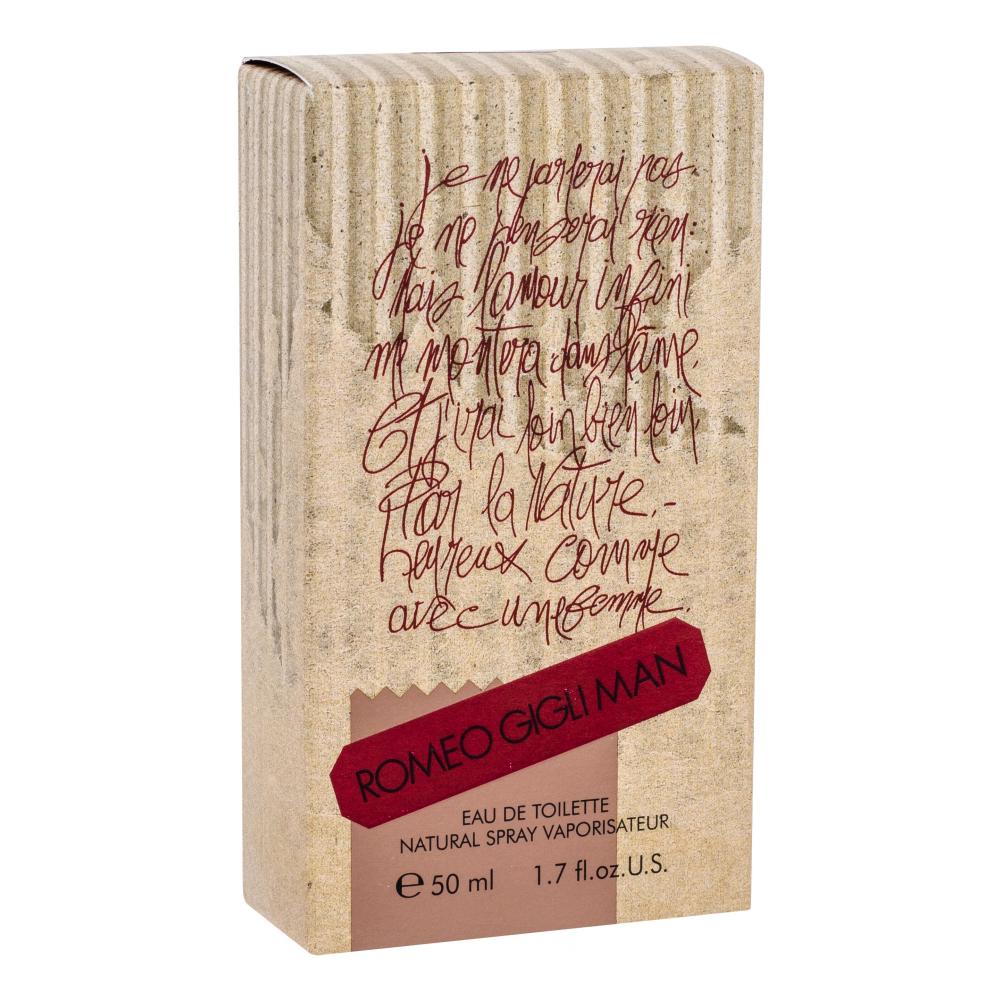 je ne parlerai pas
je ne penserai rien:
Mais l'amour infini
me montera dans l'âme,
Et j'irai loin, bien loin,
Par la Nature,-
heureux comme
avec une femme.
ROMEO GIGLI MAN
EAU DE TOILETTE
NATURAL SPRAY VAPORISATEUR
℮ 50 ml 1.7 fl.oz.U.S.